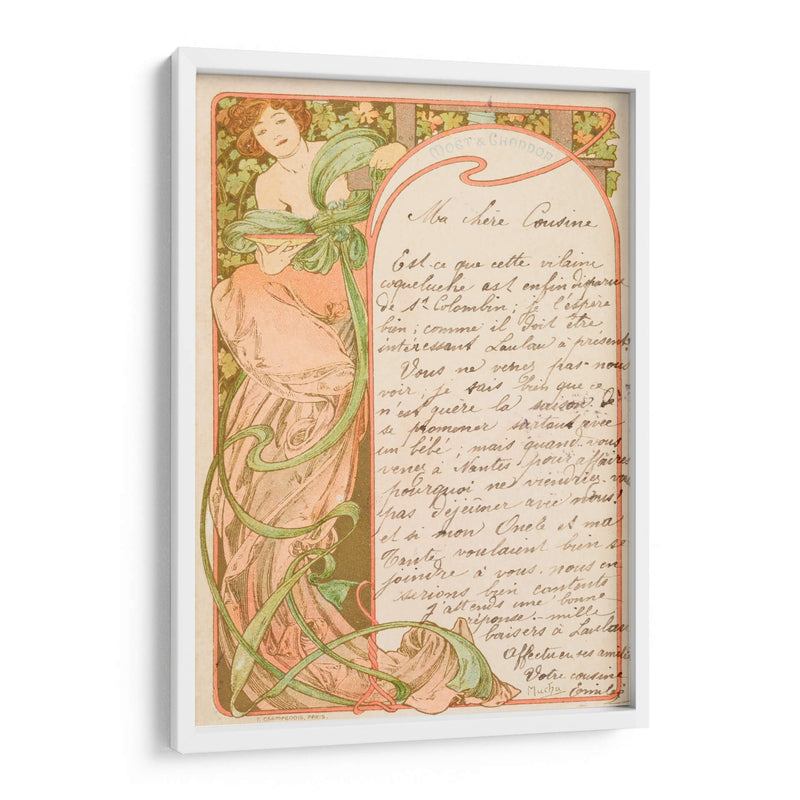 MOËT & CHANDON
Ma chère Cousine
Est-ce que cette vilaine
coqueluche est enfin disparue
de St Colombin; je l'espère
bien; comme il doit être
intéressant Laulau à présent
Vous ne venez pas nous
voir, je sais bien que ce
n'est guère la saison de
se promener surtout avec
un bébé; mais quand vous
venez à Nantes pour affaires
pourquoi ne viendriez-vous
pas déjeuner avec nous!
et si mon Oncle et ma
Tante voulaient bien se
joindre à vous nous en
serions bien contents
J'attends une bonne
réponse - mille
baisers à Laulau
Affectueuses amitiés
Votre cousine
Mucha
F. CHAMPENOIS, PARIS.